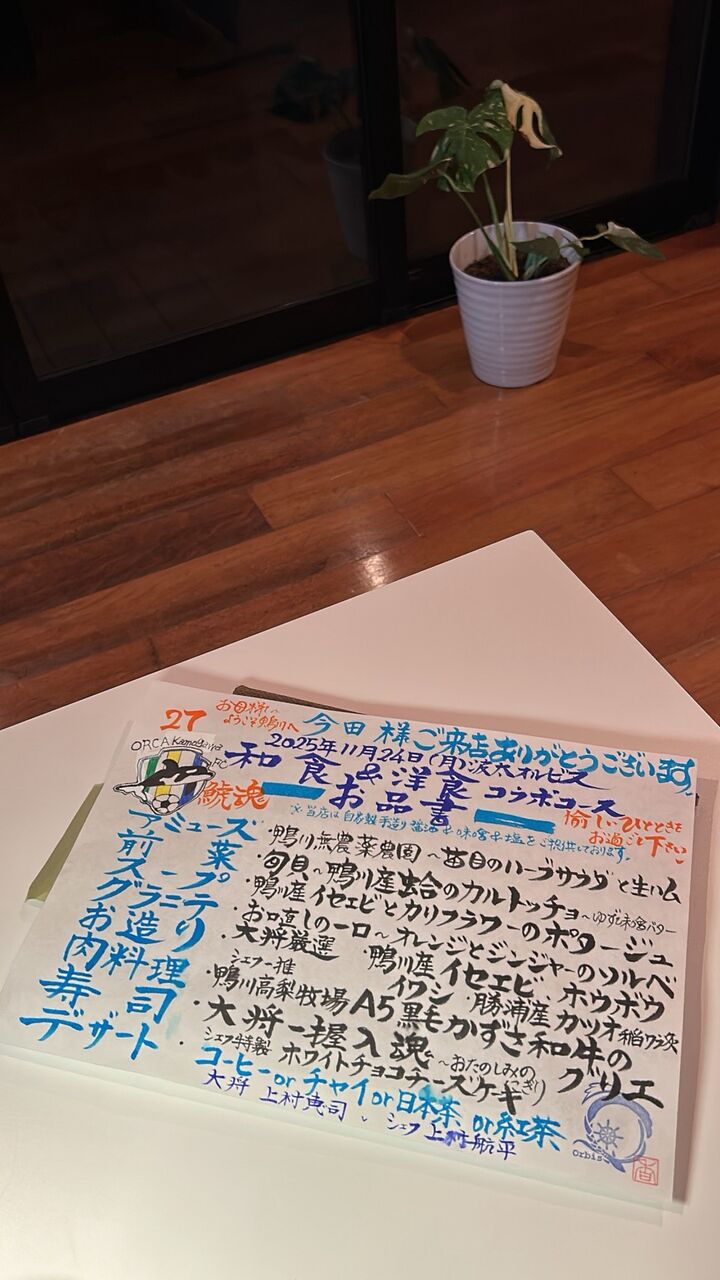 27
お母様も
ようこそ鴨川へ
今田 様ご来店ありがとうございます
2025年11月24日(月)波太オルビス
ORCA Kamogawa FC
鯱魂
和食&洋食コラボコース
お品書
愉しいひとときを
お過ごし下さい
※当店は自家製手造り醤油・味噌・塩をご提供しております。
アミューズ ・鴨川無農薬農園〜苗目のハーブサラダと生ハム
前菜 ・旬貝〜鴨川産蛤のカルトッチョ〜ゆず味噌バター
スープ ・鴨川産イセエビとカリフラワーのポタージュ
グラニテ ・お口直しの一口〜オレンジとジンジャーのソルベ
お造り ・大将厳選 鴨川産イセエビ、ホウボウ
イワシ・勝浦産カツオ稲ワラ炙
肉料理 ・シェフ一推 鴨川高梨牧場A5黒毛かずさ和牛のグリエ
寿司 ・大将一握入魂〜おたのしみのにぎり
デザート ・シェフ特製 ホワイトチョコチーズケーキ
コーヒーorチャイor日本茶or紅茶
大将 上村恵司、シェフ 上村航平
Orbis